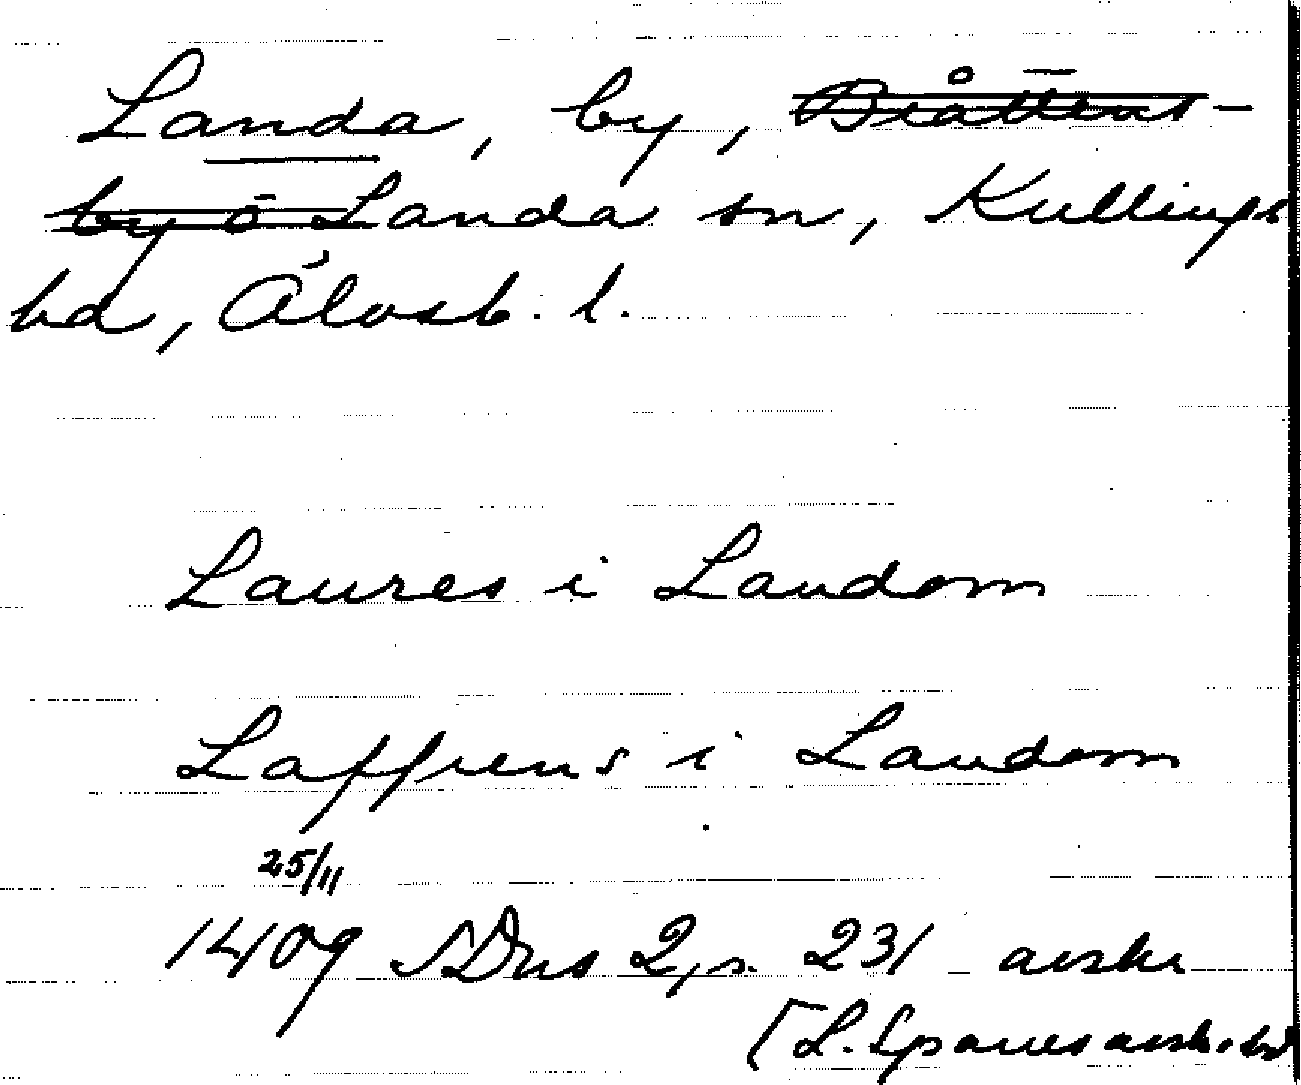 Landa, by, Bråttens-
by o Landa sn, Kullings
hd, Älvsb. l.
Laures i Landom
Laffrens i Landom
25/11
1409 SDns 2, s. 231 avskr
[L. Sparres avskr. bd